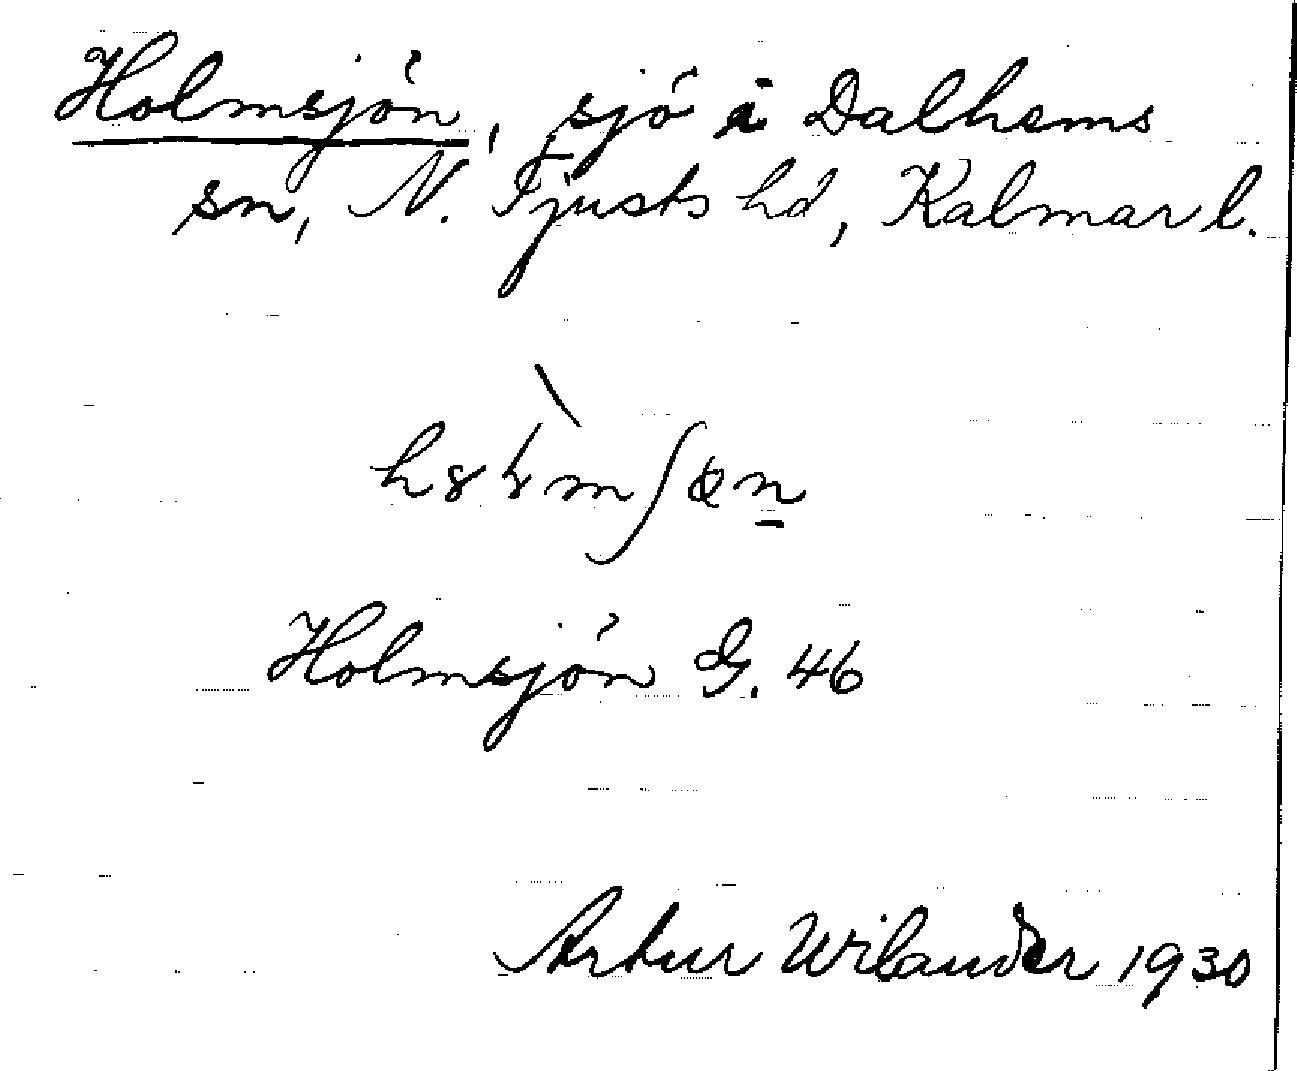 Holmsjön, sjö i Dalhems
sn, N. Tjusts hd, Kalmar l.
Holmsjön G. 46
Artur Wilander 1930